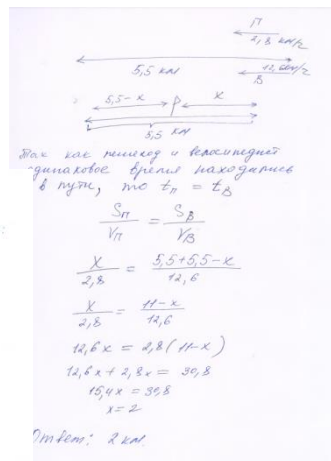 П
2,8 км/ч
5,5 км
12,6км/ч
В
5,5-x
P
x
5,5 км
Так как пешеход и велосипедист
одинаковое время находились
в пути, то tп = tВ
Sп/Vп = SВ/VВ
x/2,8 = 5,5+5,5-x/12,6
x/2,8 = 11-x/12,6
12,6x = 2,8(11-x)
12,6x + 2,8x = 30,8
15,4x = 30,8
x = 2
Ответ: 2 км.